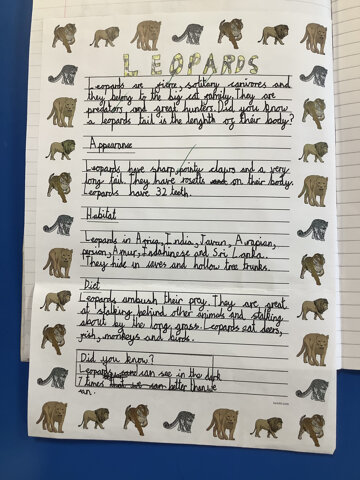 LEOPARDS
Leopards are fierce, solitary carnivores and
they belong to the big cat family. They are
predators and great hunters. Did you know
a leopards tail is the lenghth of their body?
Appearance
Leopards have sharp, pointy claws and a very
long tail. They have rosetts on their bodys.
Leopards have 32 teeth.
Habitat
Leopards in Africa, India, Javan, Arapian,
persion, Amur, Indohinese and Sri Lanka.
They hide in caves and hollow tree trunks.
Diet
Leopards ambush their prey. They are great
at stalking behind other animals and stalking
about by the long grass. Leopards eat deers,
fish, monkeys and birds.
Did you know?
Leopards can see in the dark
7 times that we can better than we
can.